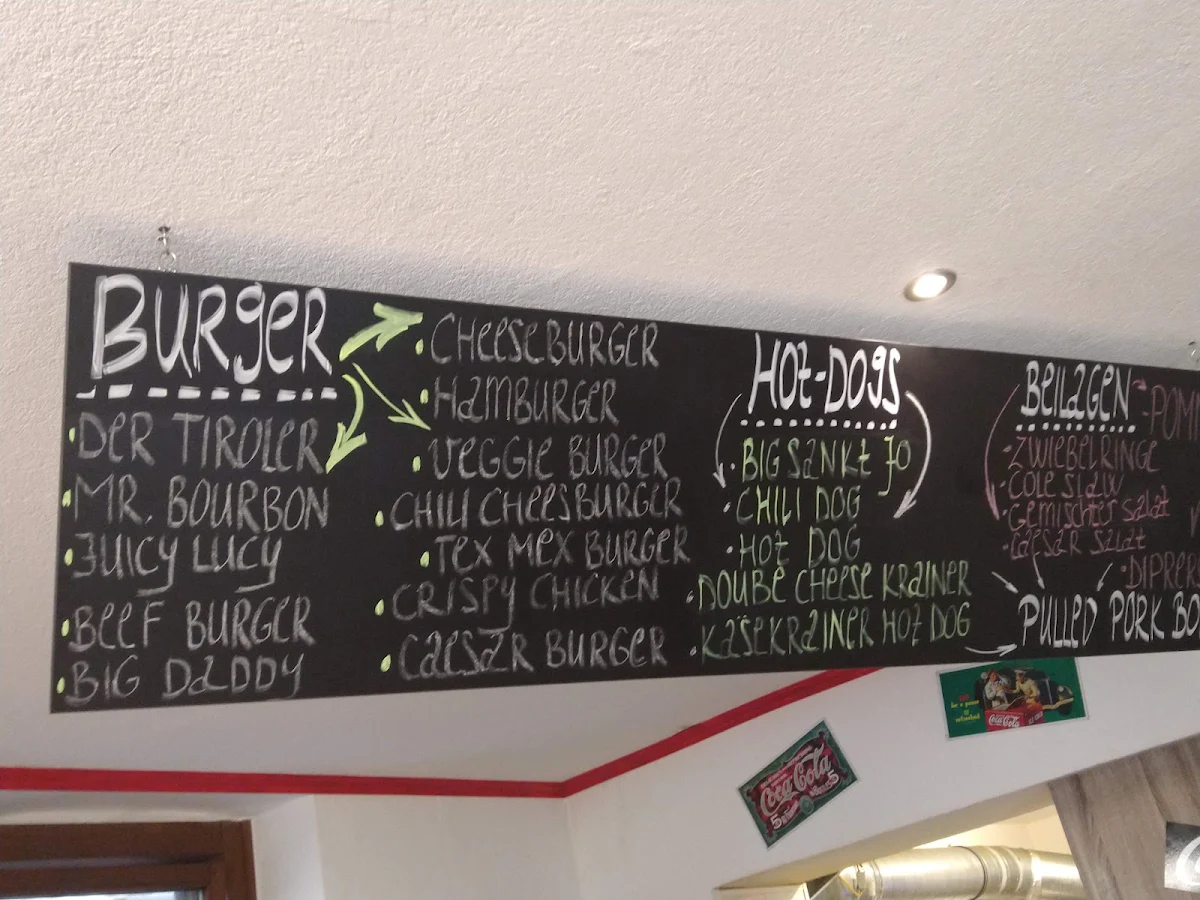 BURGER
DER TIROLER
MR. BOURBON
JUICY LUCY
BEEF BURGER
BIG DADDY
CHEESEBURGER
HAMBURGER
VEGGIE BURGER
CHILI CHEESBURGER
TEX MEX BURGER
CRISPY CHICKEN
CAESAR BURGER
HOT-DOGS
BIG SANKT JO
CHILI DOG
HOT DOG
DOUBE CHEESE KRAINER
KÄSEKRAINER HOT DOG
BEILAGEN
ZWIEBELRINGE
COLE SLAW
GEMISCHTER SALAT
CAESAR SALAT
PULLED PORK
Coca-Cola
5
Coca-Cola